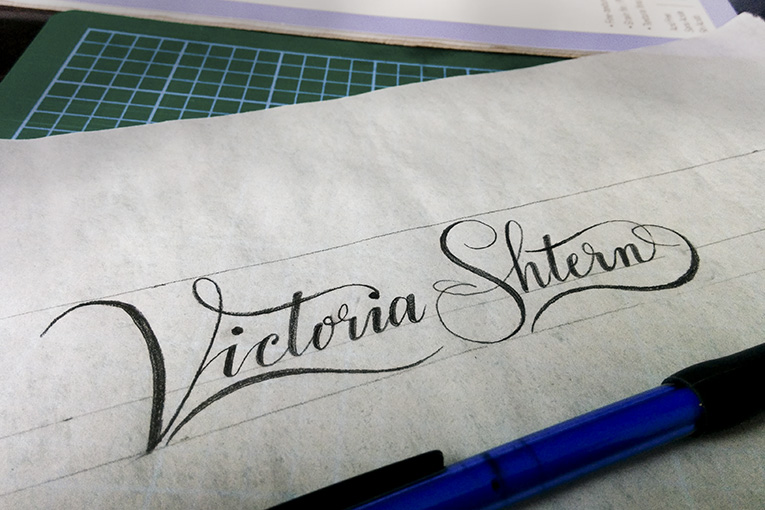 Victoria Shtern